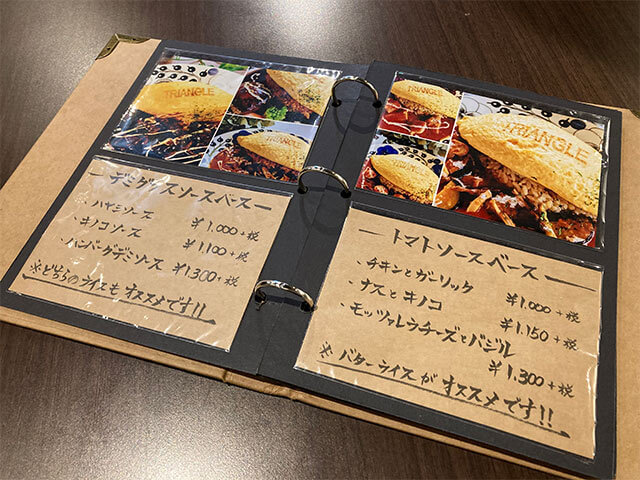 TRIANGLE
ーデミグラスソースベースー
・ハヤシソース ¥1,000+税
・キノコソース ¥1,100+税
・ハンバーグデミソース ¥1300+税
※どちらのライスもオススメです!!
TRIANGLE
TRIANGLE
ートマトソースベースー
・チキンとガーリック ¥1.000+税
・ナスとキノコ ¥1,150+税
・モッツァレラチーズとバジル
¥1,300+税
※バターライスがオススメです!!